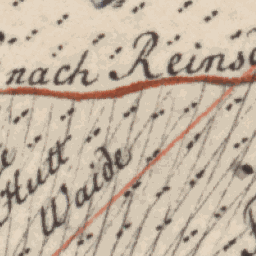 nach Reins
Hutt
Waide